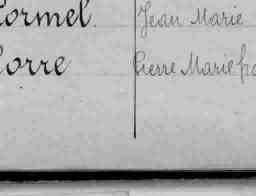 Cormel. Jean Marie
Corre Pierre Marie fra